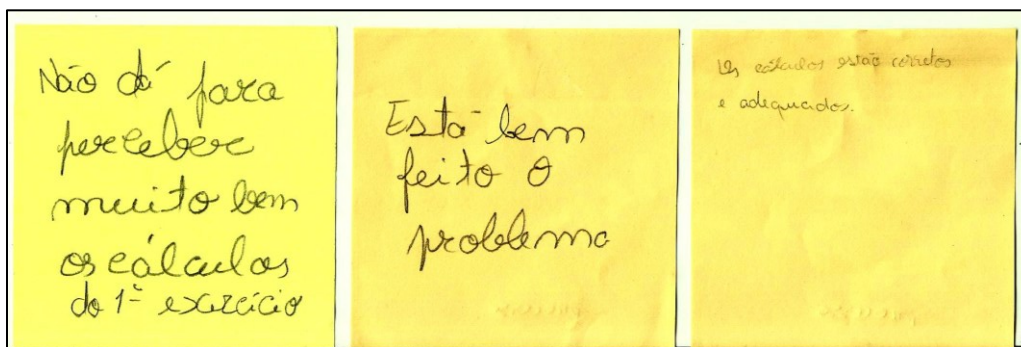 Não dá para
perceber
muito bem
os cálculos
do 1º exercício
Está bem
feito o
problema
Os cálculos estão corretos
e adequados.